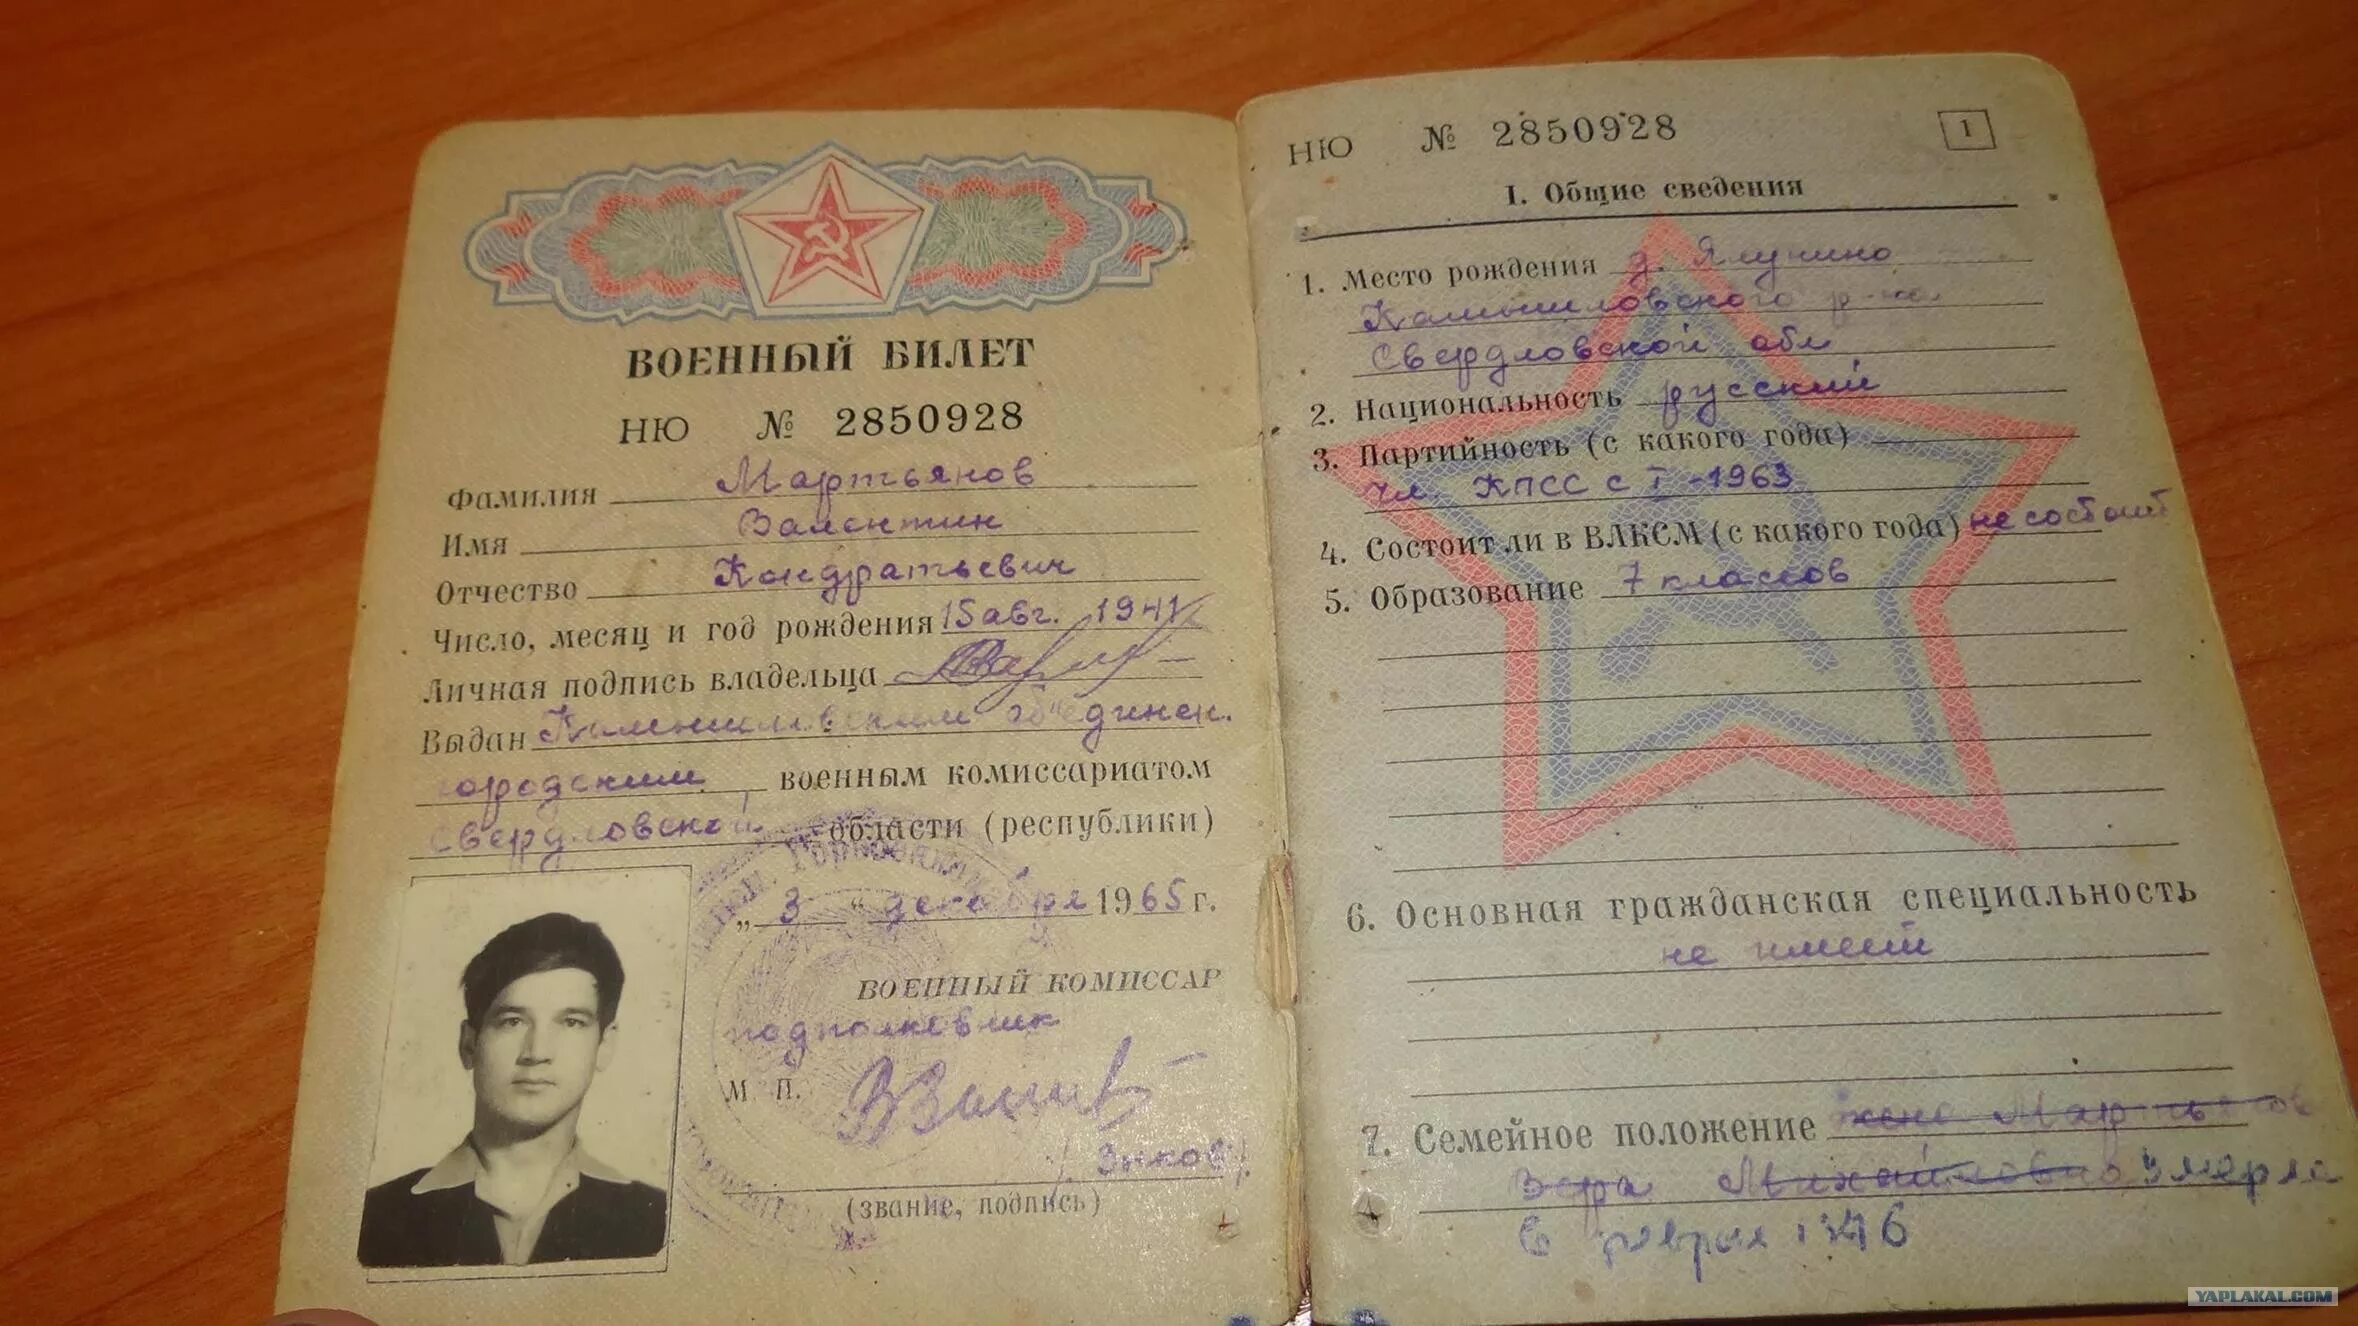 ВОЕННЫЙ БИЛЕТ
НЮ № 2850928
Фамилия Мартьянов
Имя Валентин
Отчество Кондратьевич
Число, месяц и год рождения 15 авг. 1941
Личная подпись владельца
Выдан Камышловским объединен.
городским военным комиссариатом
Свердловской области (республики)
„ 3 “ декабря 1965 г.
ВОЕННЫЙ КОМИССАР
подполковник
М П.
(звание, подпись)
НЮ № 2850928
1
I. Общие сведения
1. Место рождения д. Ялунино
Камышловского р-на
Свердловской обл
2. Национальность русский
3. Партийность (с какого года)
чл. КПСС с I-1963
4. Состоит ли в ВЛКСМ (с какого года) не состоит
5. Образование 7 классов
6. Основная гражданская специальность
не имеет
7. Семейное положение жена Мартьянова
Вера Михайловна умерла
в феврале
YAPLAKAL.COM